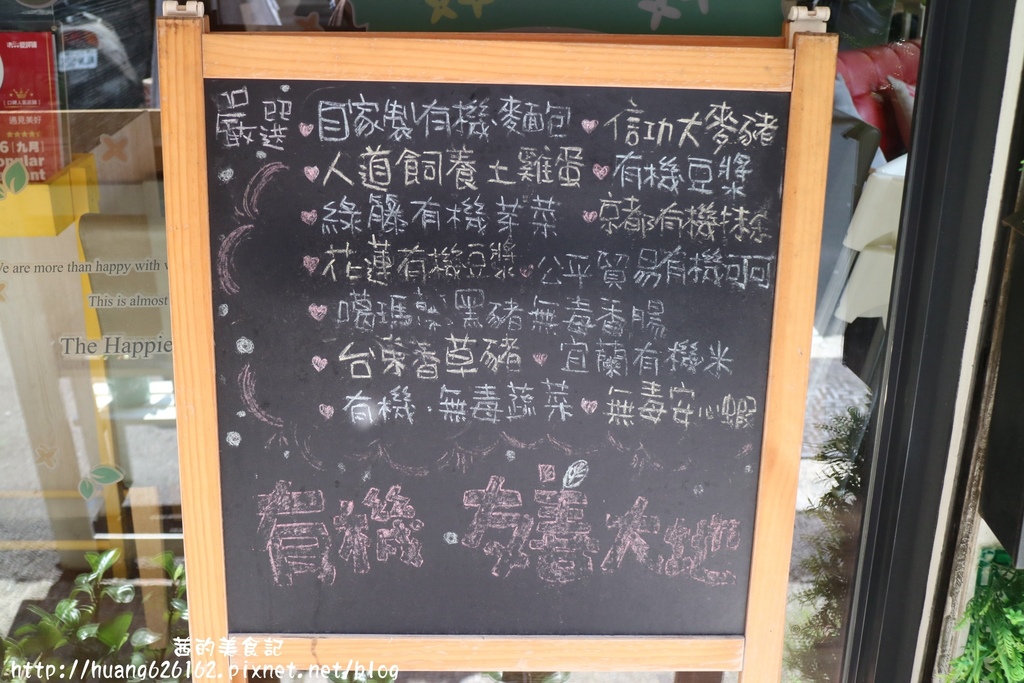 嚴選
自家製有機麵包
信功大麥豬
人道飼養土雞蛋
有機豆漿
綠藤有機芽菜
京都有機抹茶
花蓮有機豆漿
公平貿易有機可可
噶瑪蘭黑豬無毒香腸
台東香草豬
宜蘭有機米
有機・無毒蔬菜
無毒安心蝦
有機 友善大地
We are more than happy with
This is almost
The Happie
遇見美好
九月
茜的美食記
http://huang626162.pixnet.net/blog